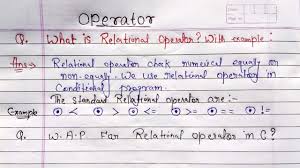 Operator
Q. What is Relational Operator? With example :
Ans → Relational operator chak numerical equally or
non-equally. We use relational operator in
Conditional program
The standard Relational operator are :-
Example < <= > >= == !=
Q. W.A.P. For Relational operator in C?